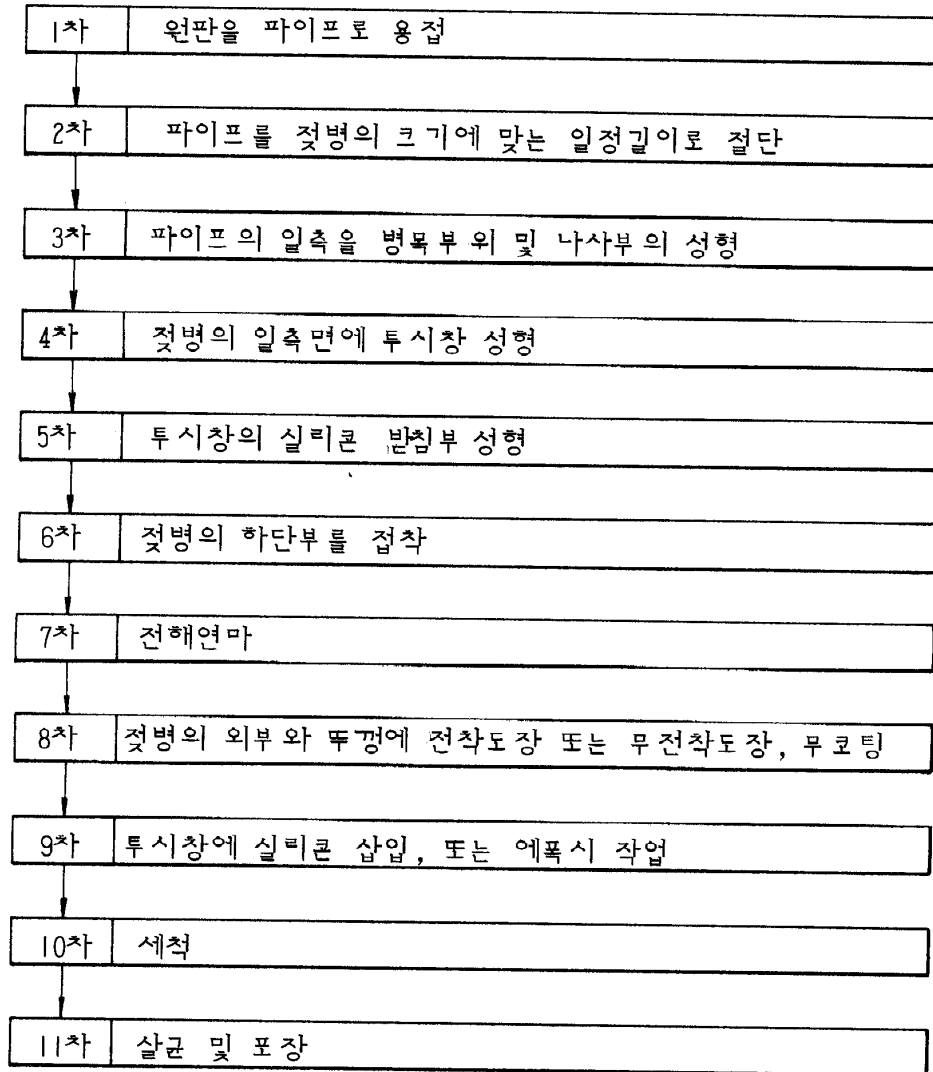 1차 원판을 파이프로 용접
2차 파이프를 젖병의 크기에 맞는 일정길이로 절단
3차 파이프의 일측을 병목부위 및 나사부의 성형
4차 젖병의 일측면에 투시창 성형
5차 투시창의 실리콘 받침부 성형
6차 젖병의 하단부를 접착
7차 전해연마
8차 젖병의 외부와 뚜껑에 전착도장 또는 무전착도장, 무코팅
9차 투시창에 실리콘 삽입, 또는 에폭시 작업
10차 세척
11차 살균 및 포장